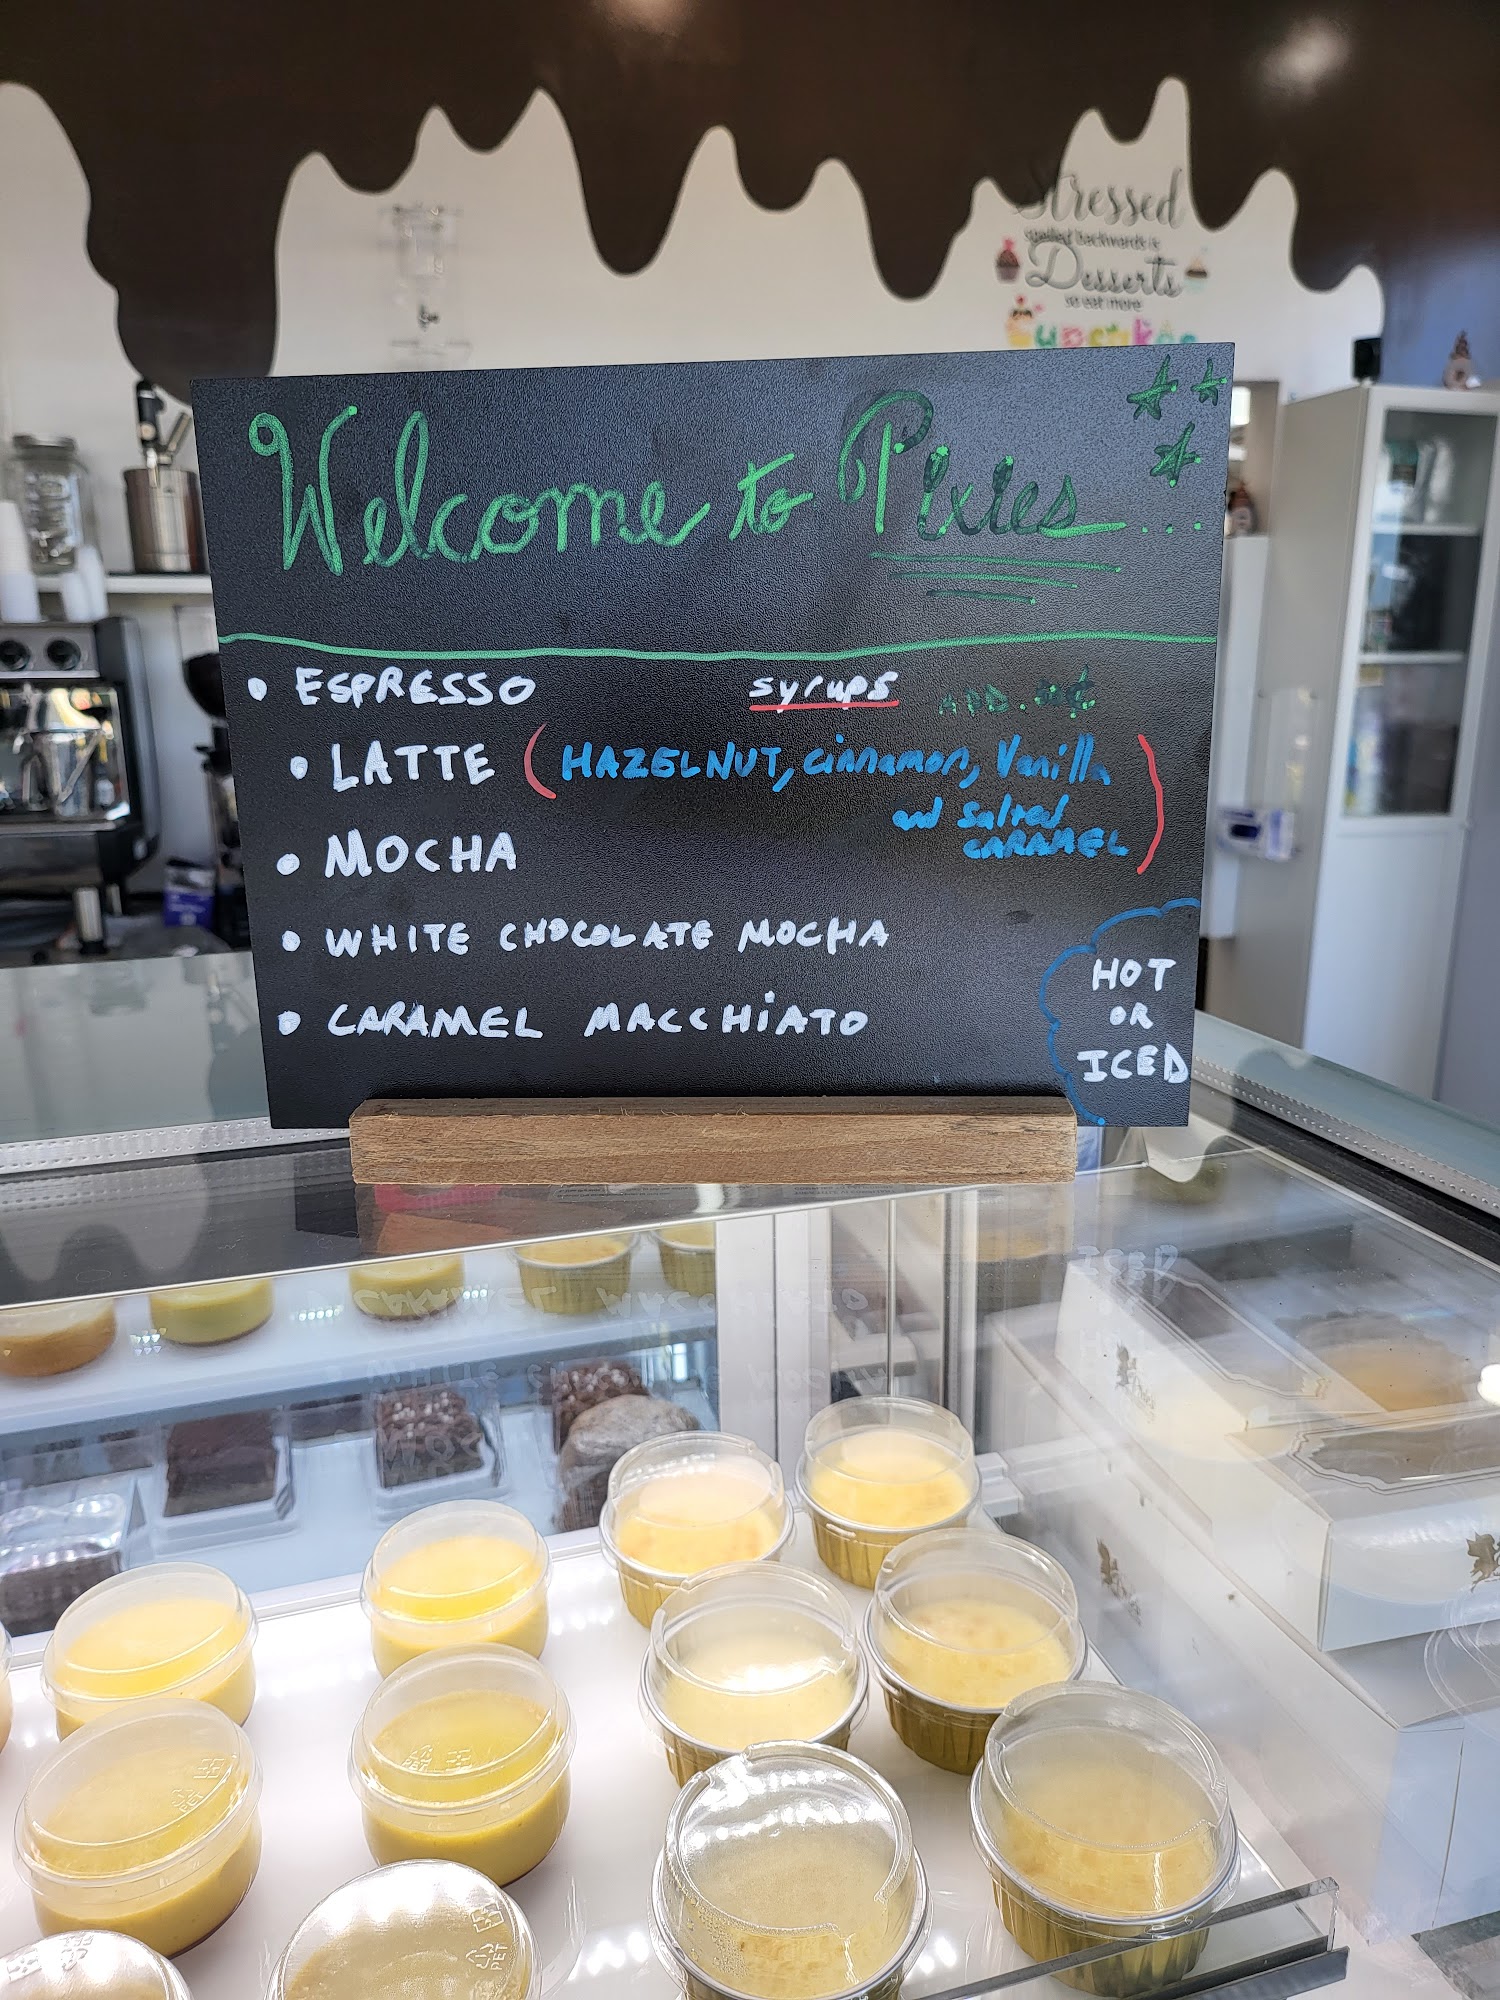 Stressed
spelled backwards is
Desserts
so eat more
Cupcakes
Welcome to Pixies...
• ESPRESSO syrups ADD
• LATTE (HAZELNUT, cinnamon, Vanilla
and Salted
CARAMEL)
• MOCHA
• WHITE CHOCOLATE MOCHA
• CARAMEL MACCHiATO
HOT
OR
ICED
PET
PET
PET